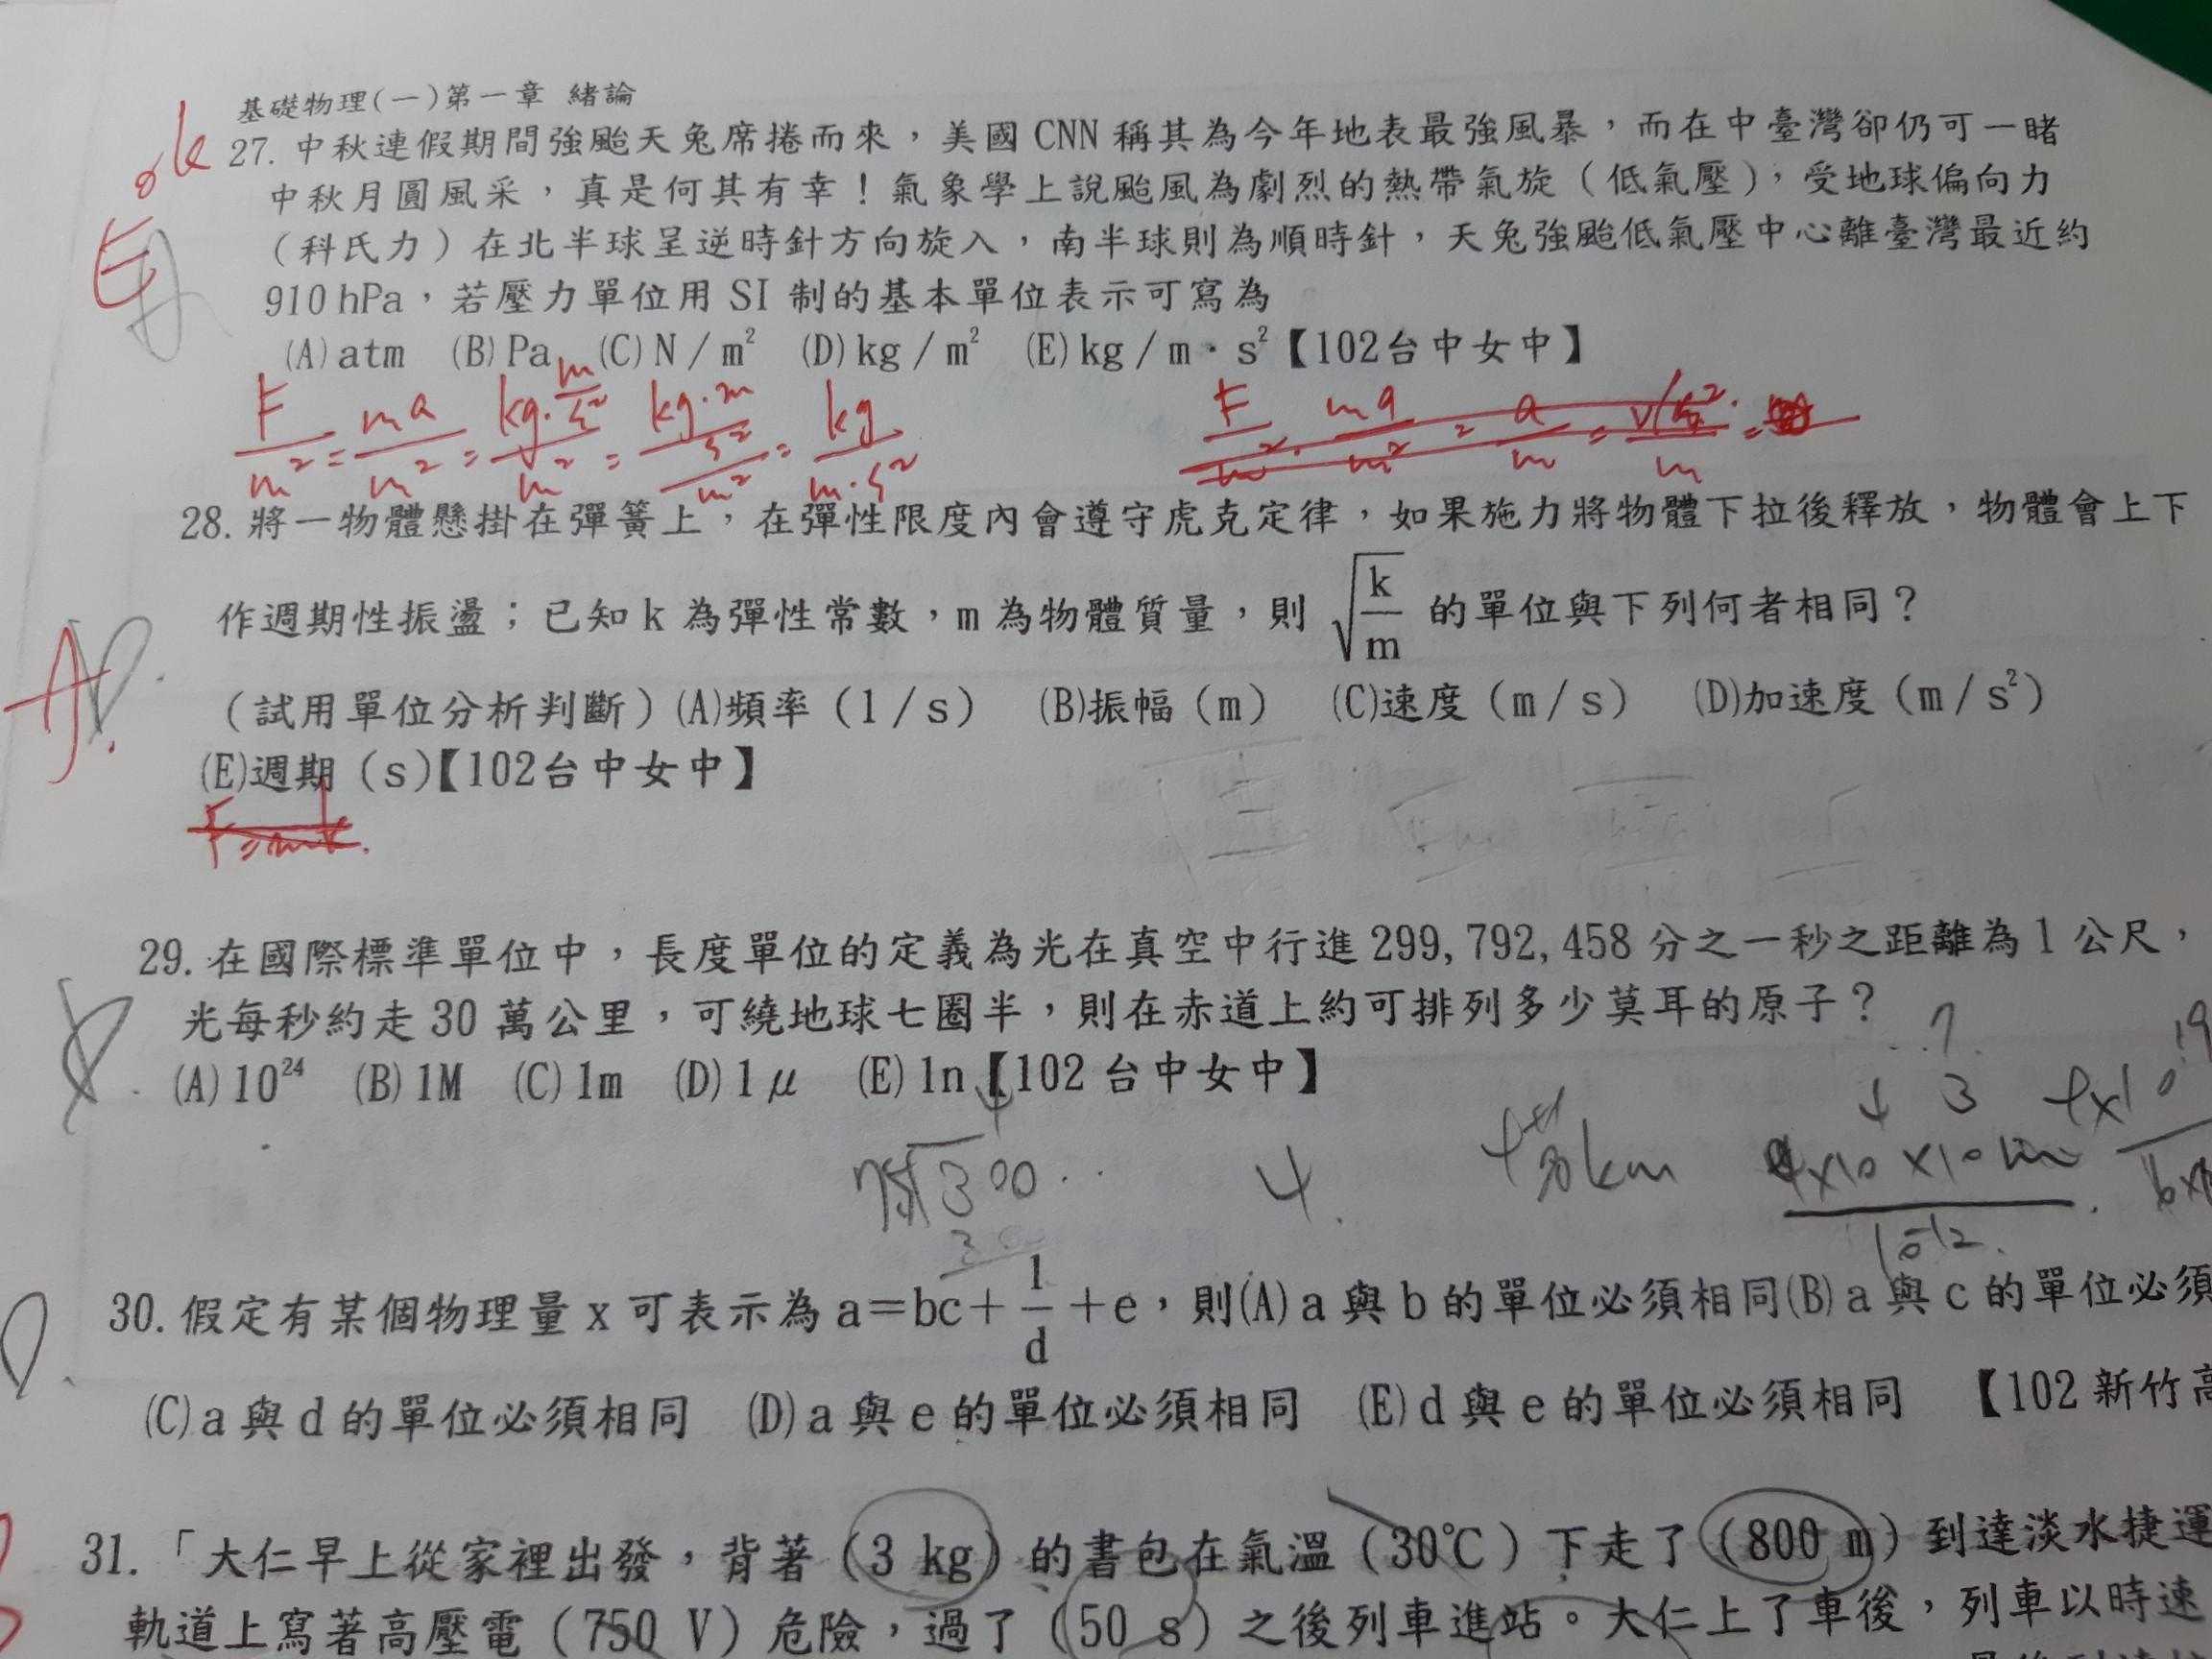 基礎物理(一)第一章 緒論
ok
27. 中秋連假期間強颱天兔席捲而來，美國 CNN 稱其為今年地表最強風暴，而在中臺灣卻仍可一睹
中秋月圓風采，真是何其有幸！氣象學上說颱風為劇烈的熱帶氣旋（低氣壓），受地球偏向力
E
（科氏力）在北半球呈逆時針方向旋入，南半球則為順時針，天兔強颱低氣壓中心離臺灣最近約
910 hPa，若壓力單位用 SI 制的基本單位表示可寫為
(A) atm (B) Pa (C) N / m² (D) kg / m² (E) kg / m · s²【102台中女中】
F/m² = ma/m² = kg·m/s²/m² = kg·m/s²/m² = kg/m·s²
28. 將一物體懸掛在彈簧上，在彈性限度內會遵守虎克定律，如果施力將物體下拉後釋放，物體會上下
作週期性振盪；已知 k 為彈性常數，m 為物體質量，則 √(k/m) 的單位與下列何者相同？
A.
（試用單位分析判斷）(A)頻率（1 / s） (B)振幅（m） (C)速度（m / s） (D)加速度（m / s²）
(E)週期（s）【102台中女中】
29. 在國際標準單位中，長度單位的定義為光在真空中行進 299,792,458 分之一秒之距離為 1 公尺，
光每秒約走 30 萬公里，可繞地球七圈半，則在赤道上約可排列多少莫耳的原子？
(A) 10²⁴ (B) 1M (C) 1m (D) 1μ (E) 1n【102 台中女中】
4
300
4
30. 假定有某個物理量 x 可表示為 a＝bc＋1/d＋e，則(A) a 與 b 的單位必須相同(B) a 與 c 的單位必須
(C) a 與 d 的單位必須相同 (D) a 與 e 的單位必須相同 (E) d 與 e 的單位必須相同 【102 新竹高
31. 「大仁早上從家裡出發，背著（3 kg）的書包在氣溫（30℃）下走了（800 m）到達淡水捷運
軌道上寫著高壓電（750 V）危險，過了（50 s）之後列車進站。大仁上了車後，列車以時速